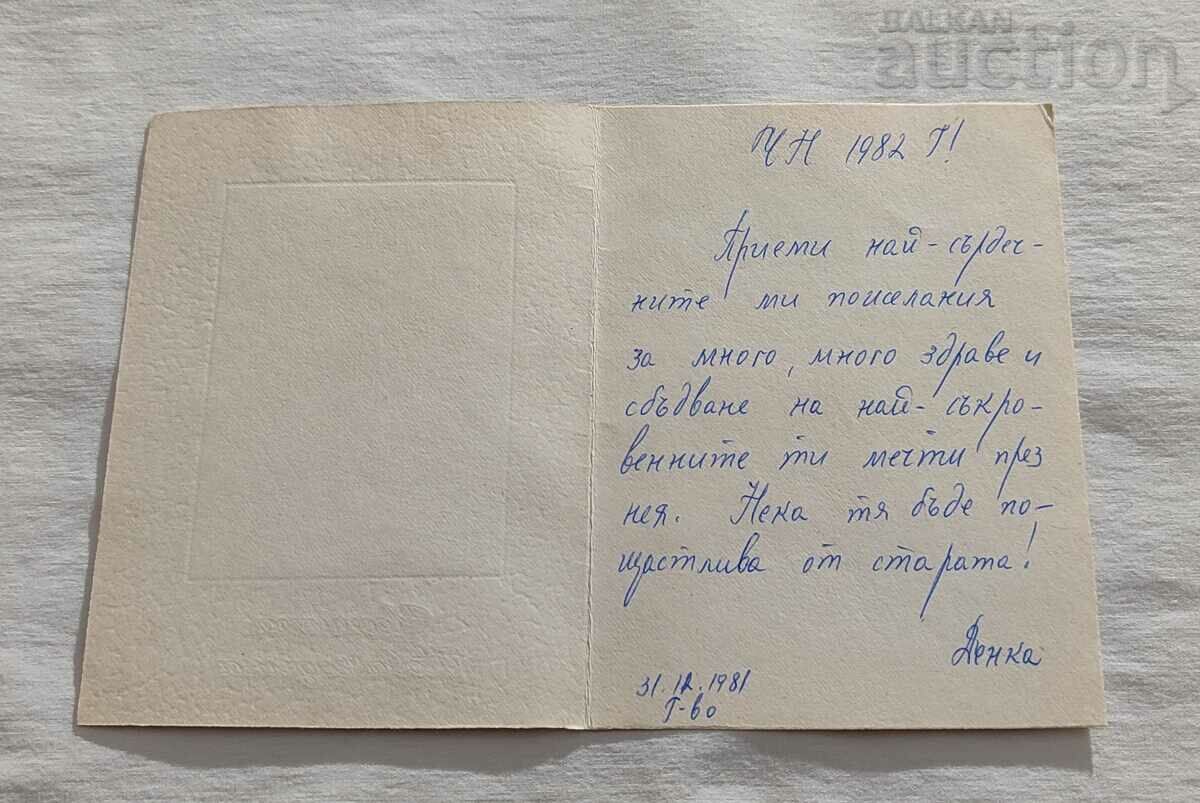 BALKAN
auction
ЧН 1982 Г!
Приеми най-сърдеч-
ните ми пожелания
за много, много здраве и
сбъдване на най-съкро-
венните ти мечти през
нея. Нека тя бъде по-
щастлива от старата!
Денка
31.12.1981
Г-во